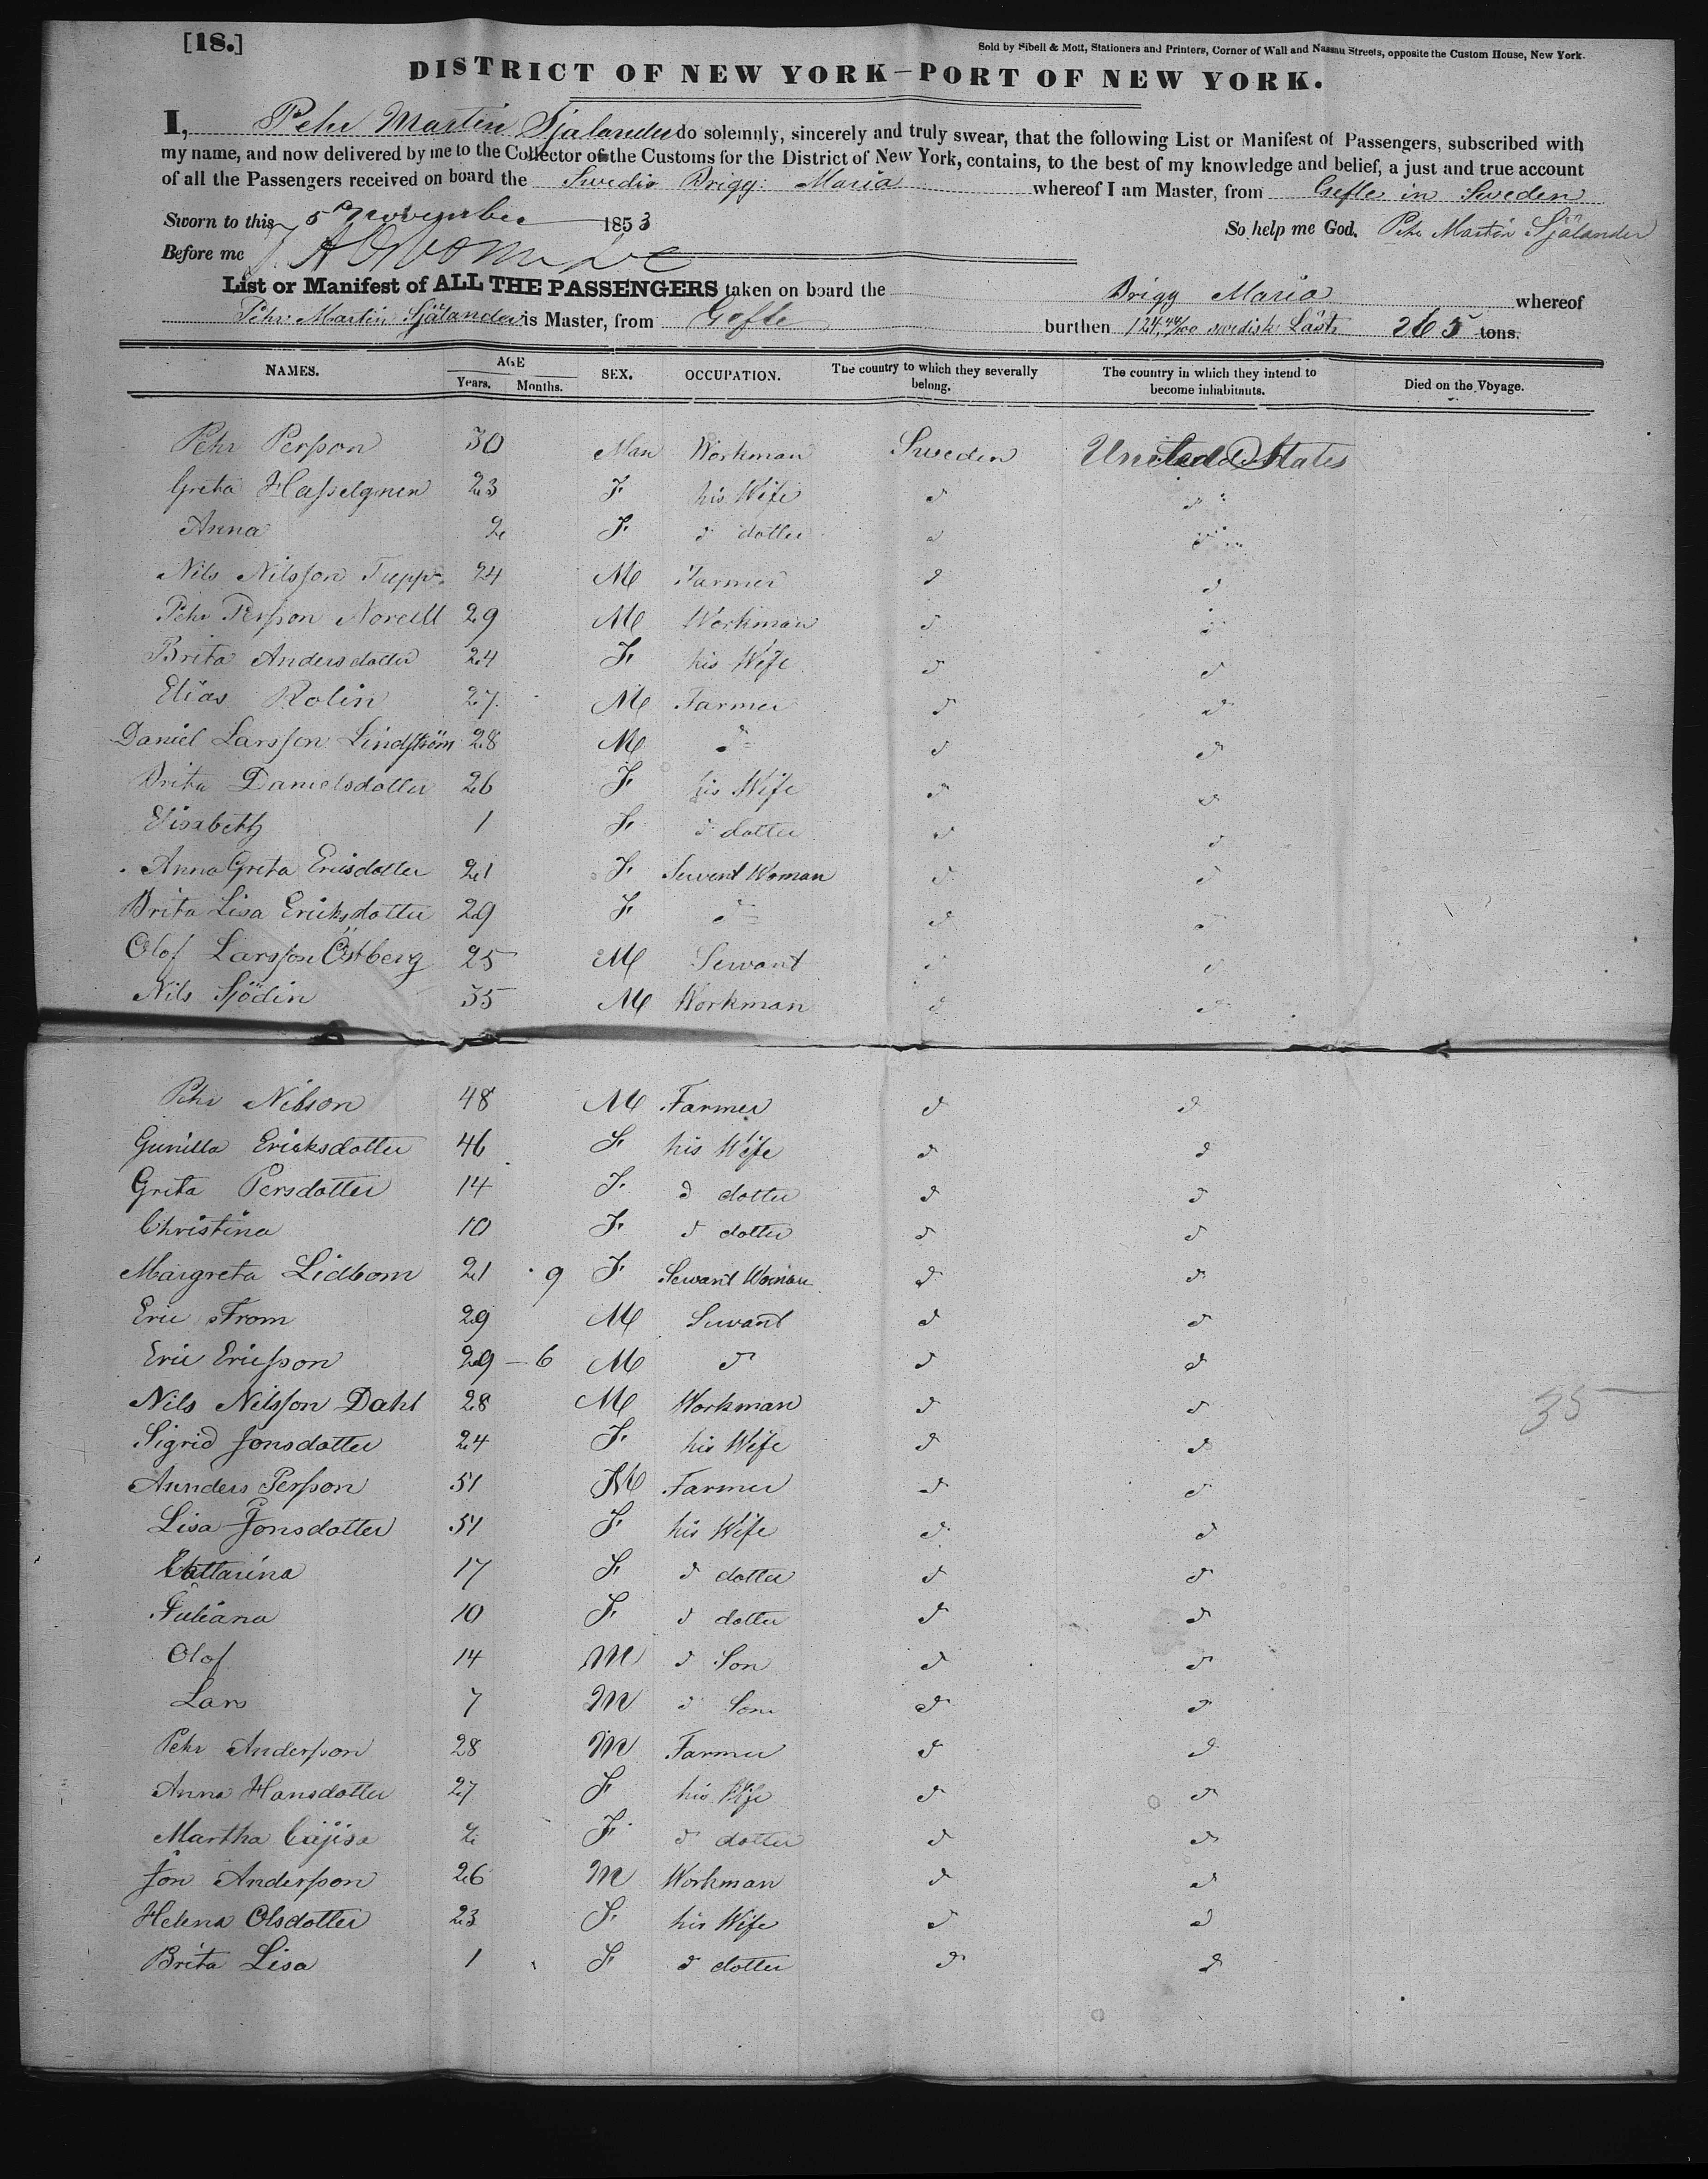 [18.]
Sold by Sibell & Mott, Stationers and Printers, Corner of Wall and Nassau Streets, opposite the Custom House, New York.
DISTRICT OF NEW YORK—PORT OF NEW YORK.
I, Pehr Martin Sjalander do solemnly, sincerely and truly swear, that the following List or Manifest of Passengers, subscribed with
my name, and now delivered by me to the Collector of the Customs for the District of New York, contains, to the best of my knowledge and belief, a just and true account
of all the Passengers received on board the Brigg: Maria whereof I am Master, from Gefle in Sweden
Sworn to this 5 November 1853 So help me God. Pehr Martin Själander
Before me
List or Manifest of ALL THE PASSENGERS taken on board the Brigg Maria whereof
Pehr Martin Själander is Master, from Gefle burthen 124 44/100 swedish Läst 265 tons.
NAMES. AGE Years. Months. SEX. OCCUPATION. The country to which they severally belong. The country in which they intend to become inhabitants. Died on the Voyage.
Pehr Persson 30 Man Workman Sweden United States
Greta 23 F his Wife d d
Anna 2 F d dotter d d
Nils Nilsson 24 M Farmer d d
Pehr Persson Norell 29 M Workman d d
Brita Andersdotter 24 F his Wife d d
Elias Rolin 27 M Farmer d d
Daniel Larsson Lindström 28 M d d d
Brita Danielsdotter 26 F his Wife d d
Elisabeth 1 F d dotter d d
Anna Greta Ericsdotter 21 F Servent Woman d d
Brita Lisa Ericksdotter 29 F d d d
Olof Larsson Östberg 25 M Servant d d
Nils Sjödin 35 M Workman d d
Pehr Nilson 48 M Farmer d d
Gunilla Ericksdotter 46 F his Wife d d
Greta Persdotter 14 F d dotter d d
Christina 10 F d dotter d d
Margreta Lidbom 21 9 F Servant Woman d d
Eric From 29 M Servant d d
Eric Ericsson 29 – 6 M d d d
Nils Nilsson Dahl 28 M Workman d d
35
Sigrid Jonsdotter 24 F his Wife d d
Annders Persson 51 M Farmer d d
Lisa Jonsdotter 51 F his Wife d d
Cattarina 17 F d dotter d d
Juliana 10 F d dotter d d
Olof 14 M d Son d d
Lars 7 M d Son d d
Pehr Andersson 28 M Farmer d d
Anna Hansdotter 27 F his Wife d d
Martha Cajisa 2 F d dotter d d
Jon Andersson 26 M Workman d d
Helena Olsdotter 23 F his Wife d d
Brita Lisa 1 F d dotter d d